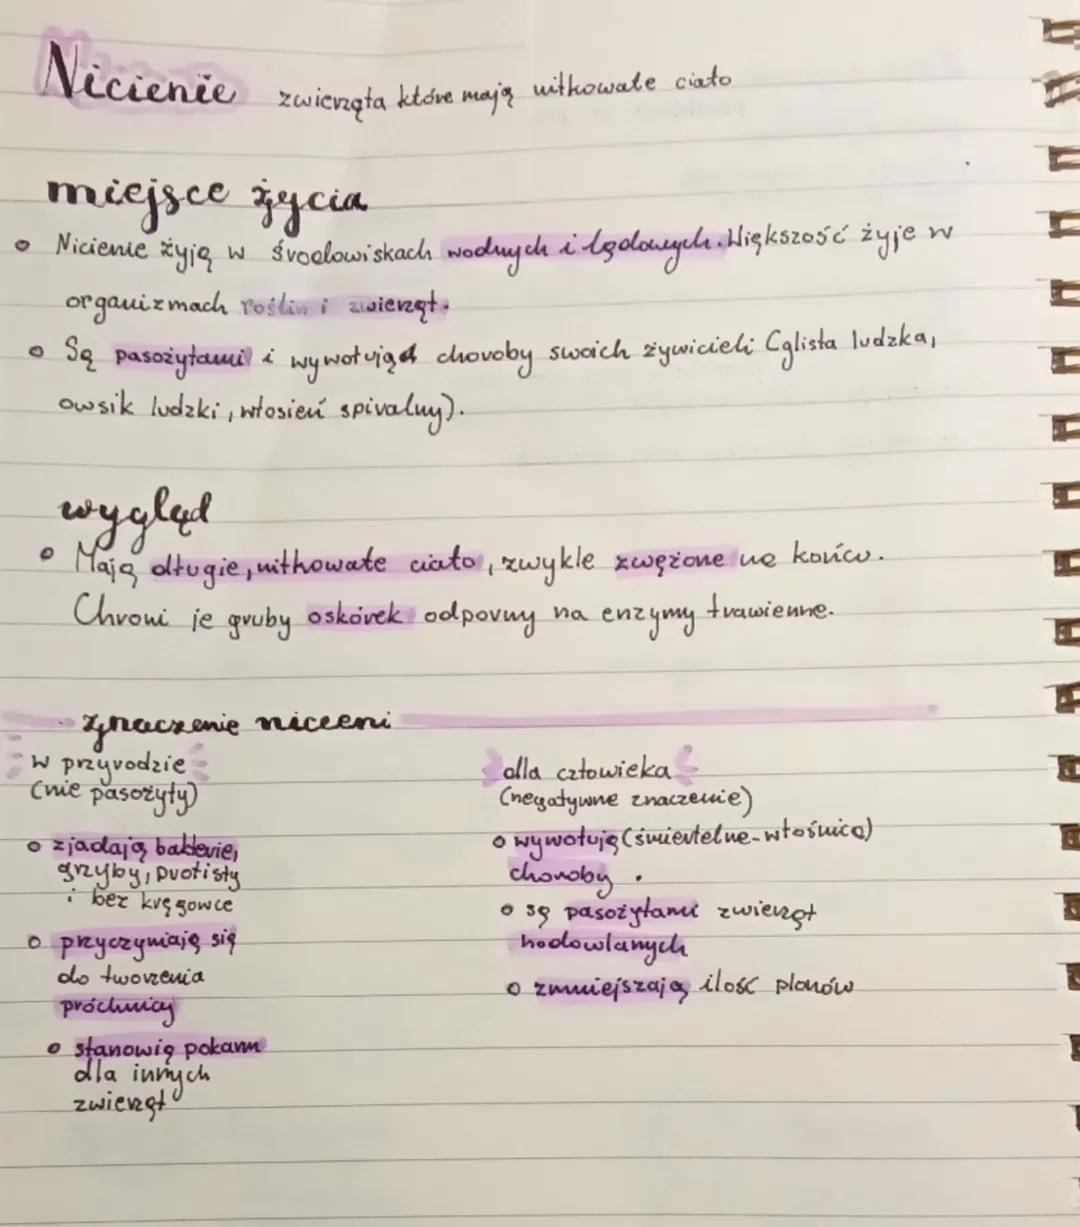 Nicienie zwierzęta które mają nitkowate ciało
miejsce życia
• Nicienie żyją w środowiskach wodnych i lądowych. Większość żyje w
organizmach roślin i zwierząt.
• Są pasożytami i wywołują choroby swoich żywicieli (glista ludzka,
owsik ludzki, włosień spiralny).
wygląd
• Mają długie, nitkowate ciało, zwykle zwężone na końcu.
Chroni je gruby oskórek odporny na enzymy trawienne.
znaczenie niceeni
w przyrodzie
(nie pasożyty)
• zjadają bakterie,
grzyby, protisty
i bez kręgowce
• przyczyniają się
do tworzenia
próchnicy
• stanowią pokarm
dla innych
zwierząt
dla człowieka
(negatywne znaczenie)
• wywołują (śmiertelne-włośnica)
choroby.
• są pasożytami zwierząt
hodowlanych
• zmniejszają ilość plonów